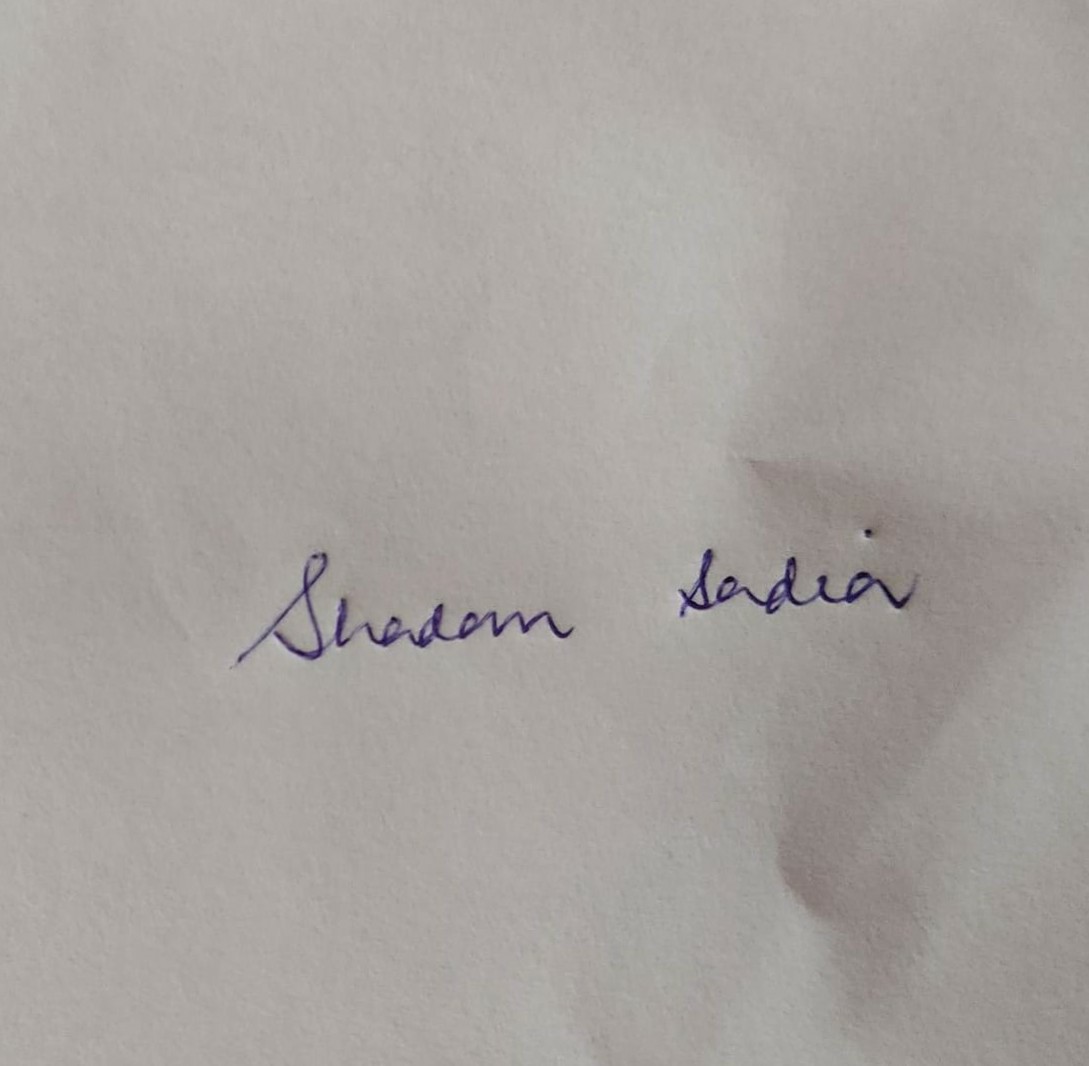 Shadam sadia